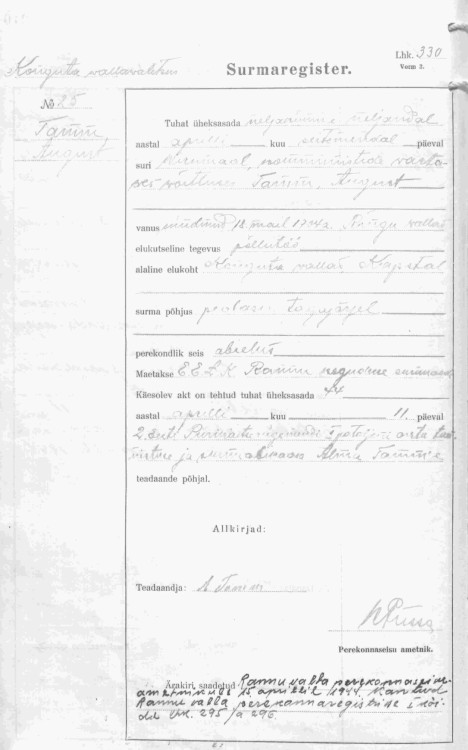 Lhk. 330
Vorm 2.
Konguta vallavalitsus
Surmaregister.
№ 25
Tamm
August
Tuhat üheksasada neljakümne neljandal
aastal aprilli kuu seitsmendal päeval
suri kommunistide vasta-
ses võitluses Tamm, August
vanus sündinud 18. mail Rõngu vallas
elukutseline tegevus põllutöö
alaline elukoht Konguta vallas
surma põhjus peahaava tagajärjel
perekondlik seis abielus
Maetakse E E L K Rannu koguduse
Käesolev akt on tehtud tuhat üheksasada 44
aastal aprilli kuu 11. päeval
2. Eesti
ja Alma Tamme
teadaande põhjal.
Allkirjad:
Teadaandja: A Tamm
Perekonnaseisu ametnik.
Ärakiri saadetud Rannu valla perekonnaseisu-
ametnikule 15. aprillil 1944. Kantud
Rannu valla perekonnaregistrisse köi-
de lhk. 295 ja 296.